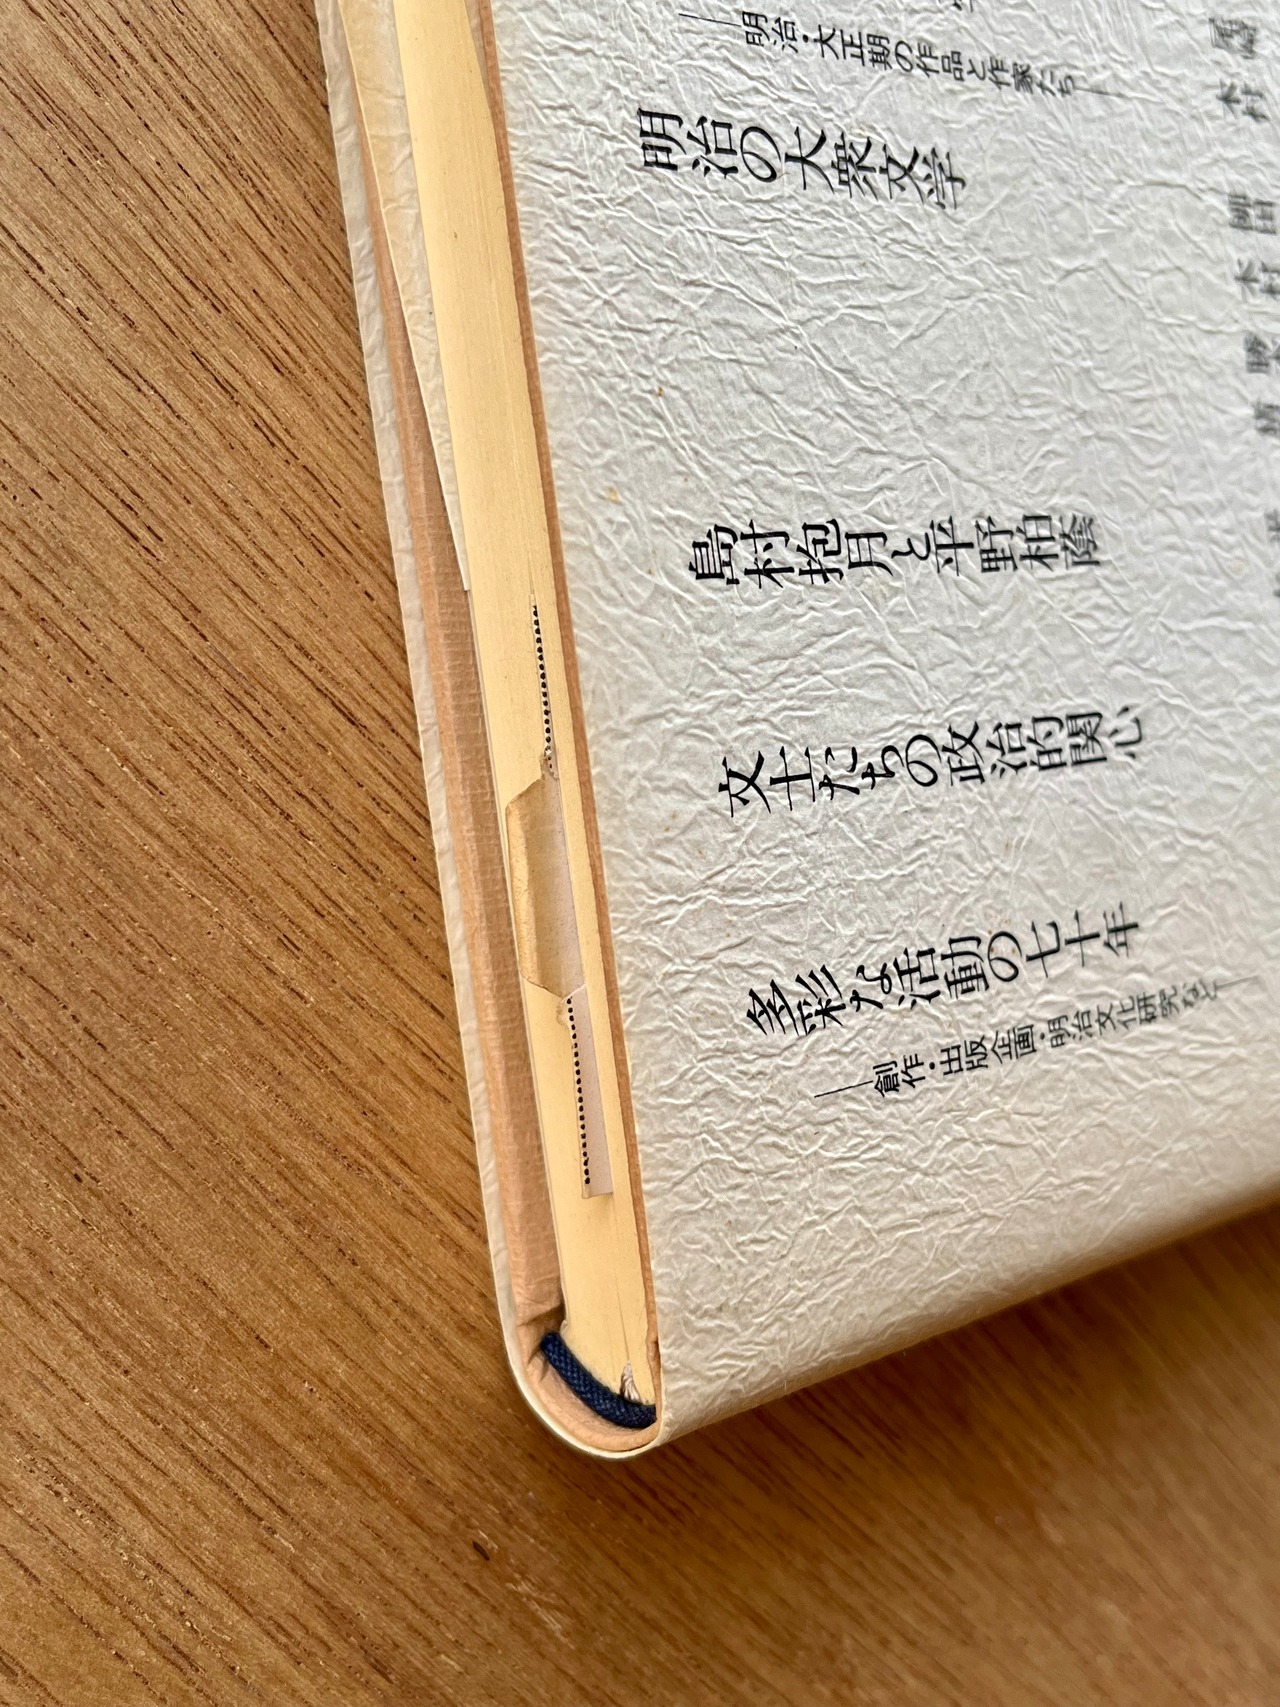 ——明治・大正期の作品と作家たち——
明治の大衆文学
島村抱月と平野柏蔭
文士たちの政治的関心
多彩な活動の七十年
——創作・出版企画・明治文化研究など——